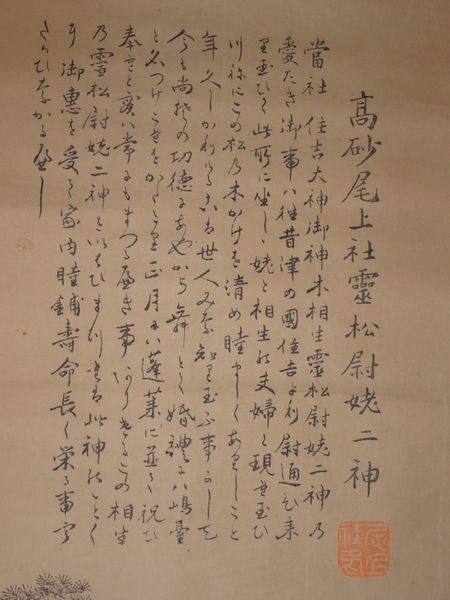 高砂尾上社靈松尉姥二神
當社 住吉大神御神木相生靈松尉姥二神乃
愛たき御事ハ往昔津の國住吉より尉通ひ来
里玉ひて此所に坐しゝ姥と相生乃夫婦と現れ玉ひ
川ねにこの松乃木かけを清め睦ましくありしこと
年久しかりける世人みな知里玉ふ事にして
今も尚其の功徳にあやからむとて婚禮にハ嶋臺
と名つけこれをかさり正月にハ蓬莱に並へて祝ひ
奉ると實に常にもまつるへき事なりけるこの相生
乃靈松尉姥二神をいはひまつる此神のことく
御惠を受て家内睦鋪壽命長く栄る事宇
たかひなかるへし